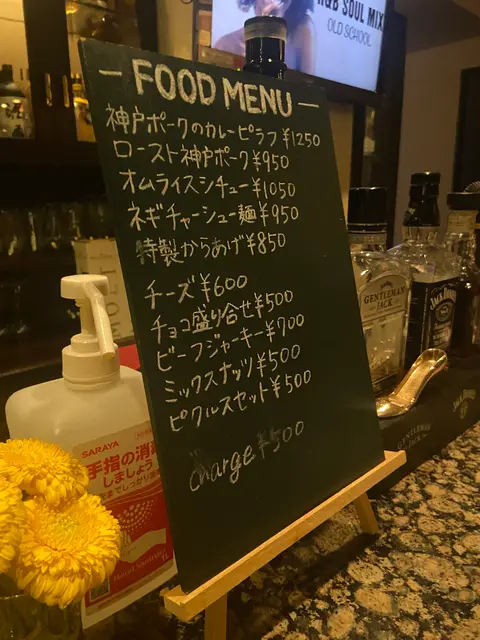 R&B SOUL MIX
OLD SCHOOL
— FOOD MENU —
神戸ポークのカレーピラフ ¥1250
ロースト神戸ポーク¥950
オムライスシチュー¥1050
ネギチャーシュー麺¥950
特製からあげ¥850
チーズ¥600
チョコ盛り合せ¥500
ビーフジャーキー¥700
ミックスナッツ¥500
ピクルスセット¥500
charge ¥500
SARAYA
手指の消
しましょう
GENTLEMAN
JACK
JACK
GENTLEMAN JACK